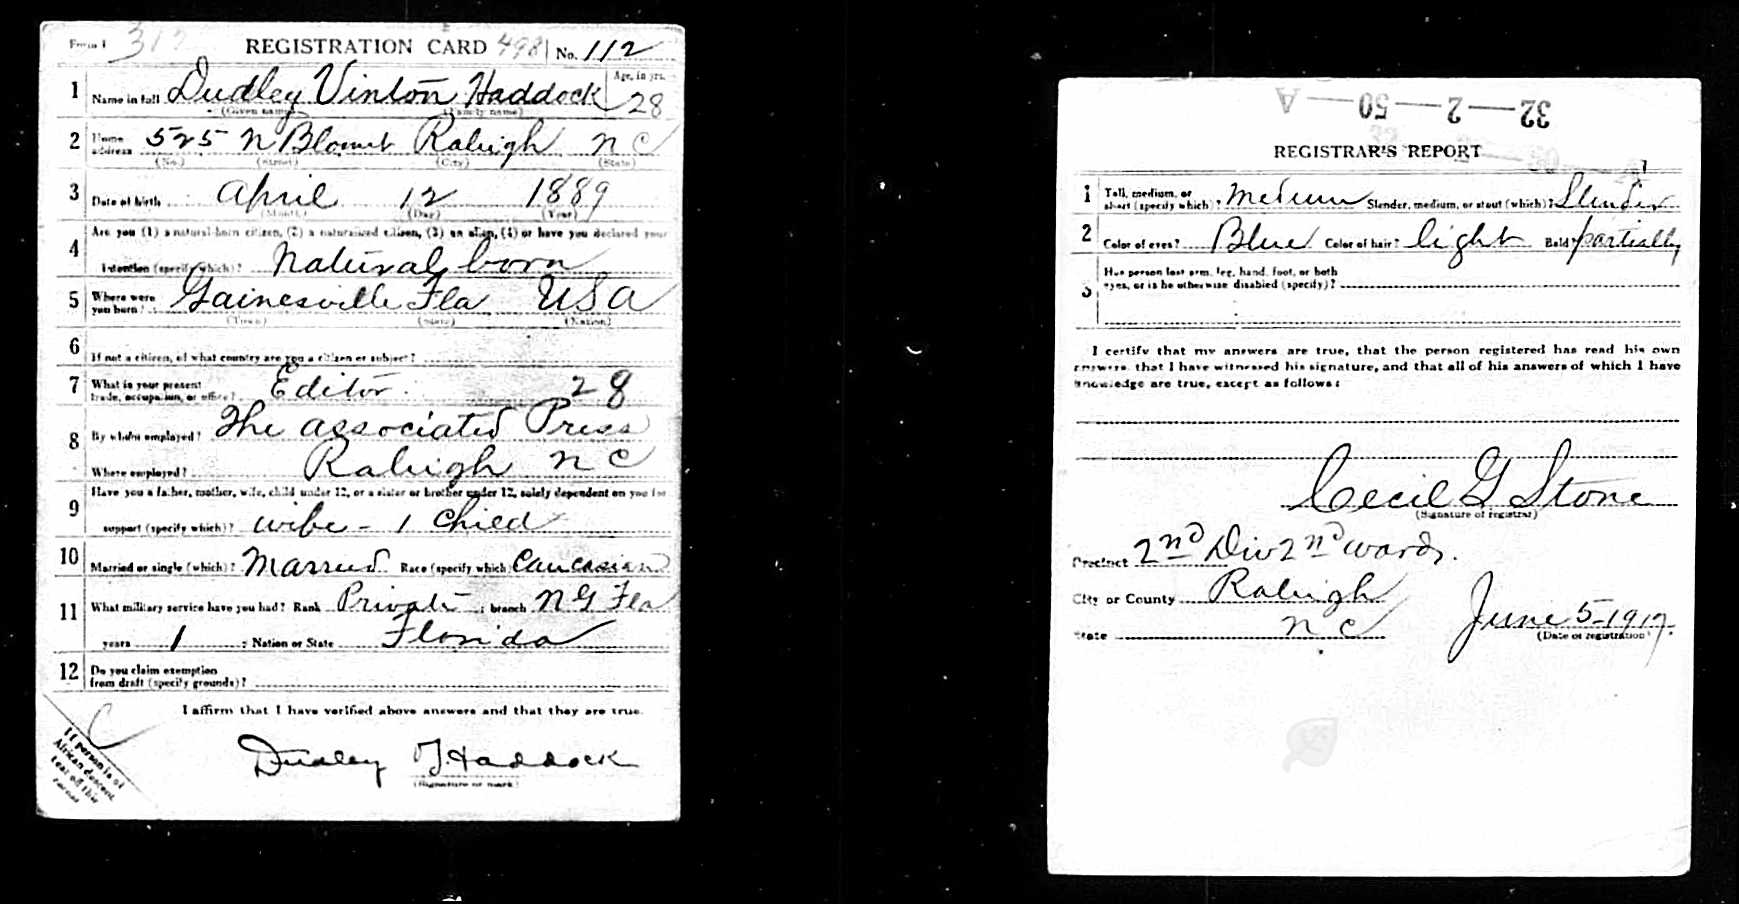 Form 1 317 REGISTRATION CARD 498 No. 112
1 Name in full Dudley Vinton Haddock Age, in yrs. 28
(Given name) (Family name)
2 Home address 525 N Blount Raleigh N C
(No.) (Street) (City) (State)
3 Date of birth April 12 1889
(Month) (Day) (Year)
4 Are you (1) a natural-born citizen, (2) a naturalized citizen, (3) an alien, (4) or have you declared your
intention (specify which)? Natural born
5 Where were you born? Gainesville Fla USA
(Town) (State) (Nation)
6 If not a citizen, of what country are you a citizen or subject?
7 What is your present trade, occupation, or office? Editor 28
8 By whom employed? The associated Press
Where employed? Raleigh N C
9 Have you a father, mother, wife, child under 12, or a sister or brother under 12, solely dependent on you for
support (specify which)? wife - 1 child
10 Married or single (which)? Married Race (specify which) Caucasian
11 What military service have you had? Rank Private ; branch N G Fla
years 1 ; Nation or State Florida
12 Do you claim exemption from draft (specify grounds)?
I affirm that I have verified above answers and that they are true.
C
Dudley V. Haddock
(Signature or mark)
If person is of
African descent
tear off this
corner
32—2—50—A
REGISTRAR'S REPORT
1 Tall, medium, or short (specify which)? medium Slender, medium, or stout (which)? Slender
2 Color of eyes? Blue Color of hair? light Bald? partially
3 Has person lost arm, leg, hand, foot, or both
eyes, or is he otherwise disabled (specify)?
I certify that my answers are true, that the person registered has read his own
answers, that I have witnessed his signature, and that all of his answers of which I have
knowledge are true, except as follows:
Cecil G Stone
(Signature of registrar)
Precinct 2nd Div 2nd ward.
City or County Raleigh
State N C June 5-1917.
(Date of registration)